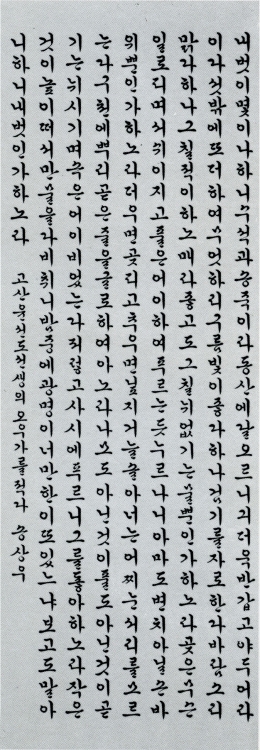 내벗이몇이나하니수석과송죽이라동산에달오르니긔더욱반갑고야두어라
이다섯밖에또더하여무엇하리구름빛이좋다하나검기를자로한다바람소리
맑다하나그칠적이하노매라좋고도그칠뉘없기는물뿐인가하노라꽃은무슨
일로피며쉬이지고풀은어이하여푸르는듯누르나니아마도변치아닐손바
위뿐인가하노라더우면꽃피고추우면닢지거늘솔아너는어찌눈서리를모르
는다구천에뿌리곧은줄을글로하여아노라나모도아닌것이풀도아닌것이곧
기는뉘시기며속은어이비었는다저렇고사시에푸르니그를좋아하노라작은
것이높이떠서만물을다비취니밤중에광명이너만한이또있느냐보고도말아
니하니내벗인가하노라 고산윤선도선생의오우가를적다 송상우